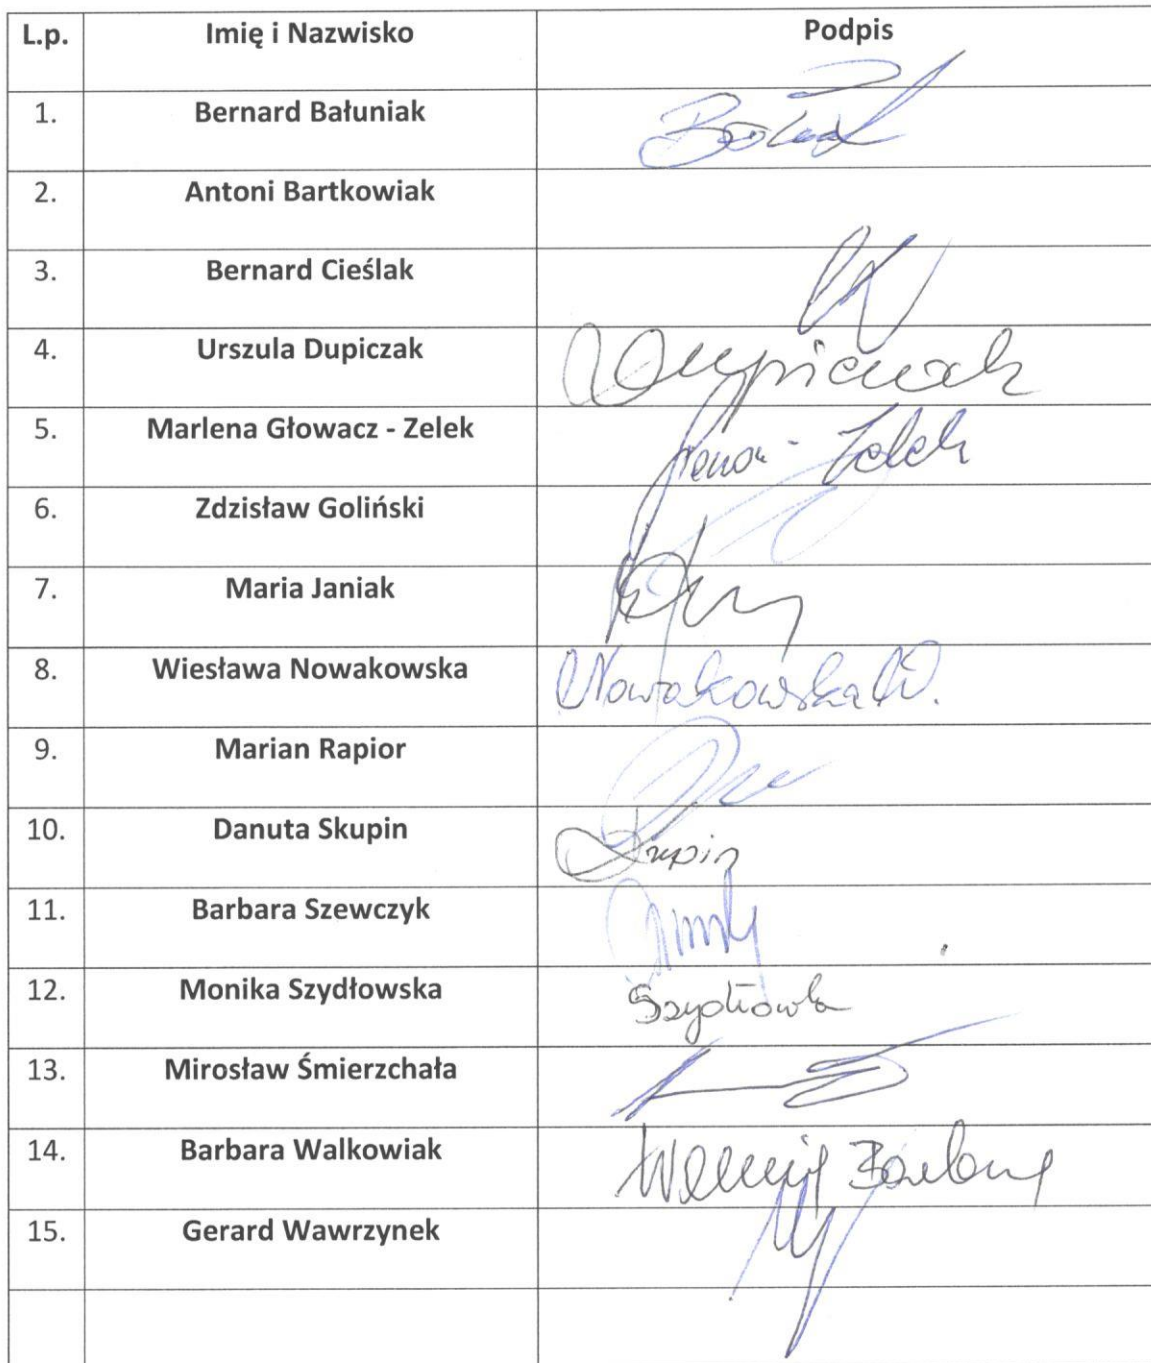 L.p. Imię i Nazwisko Podpis
1. Bernard Bałuniak
2. Antoni Bartkowiak
3. Bernard Cieślak
4. Urszula Dupiczak Dupiczak
5. Marlena Głowacz - Zelek
6. Zdzisław Goliński
7. Maria Janiak
8. Wiesława Nowakowska Nowakowska W.
9. Marian Rapior
10. Danuta Skupin Skupin
11. Barbara Szewczyk
12. Monika Szydłowska
13. Mirosław Śmierzchała
14. Barbara Walkowiak
15. Gerard Wawrzynek